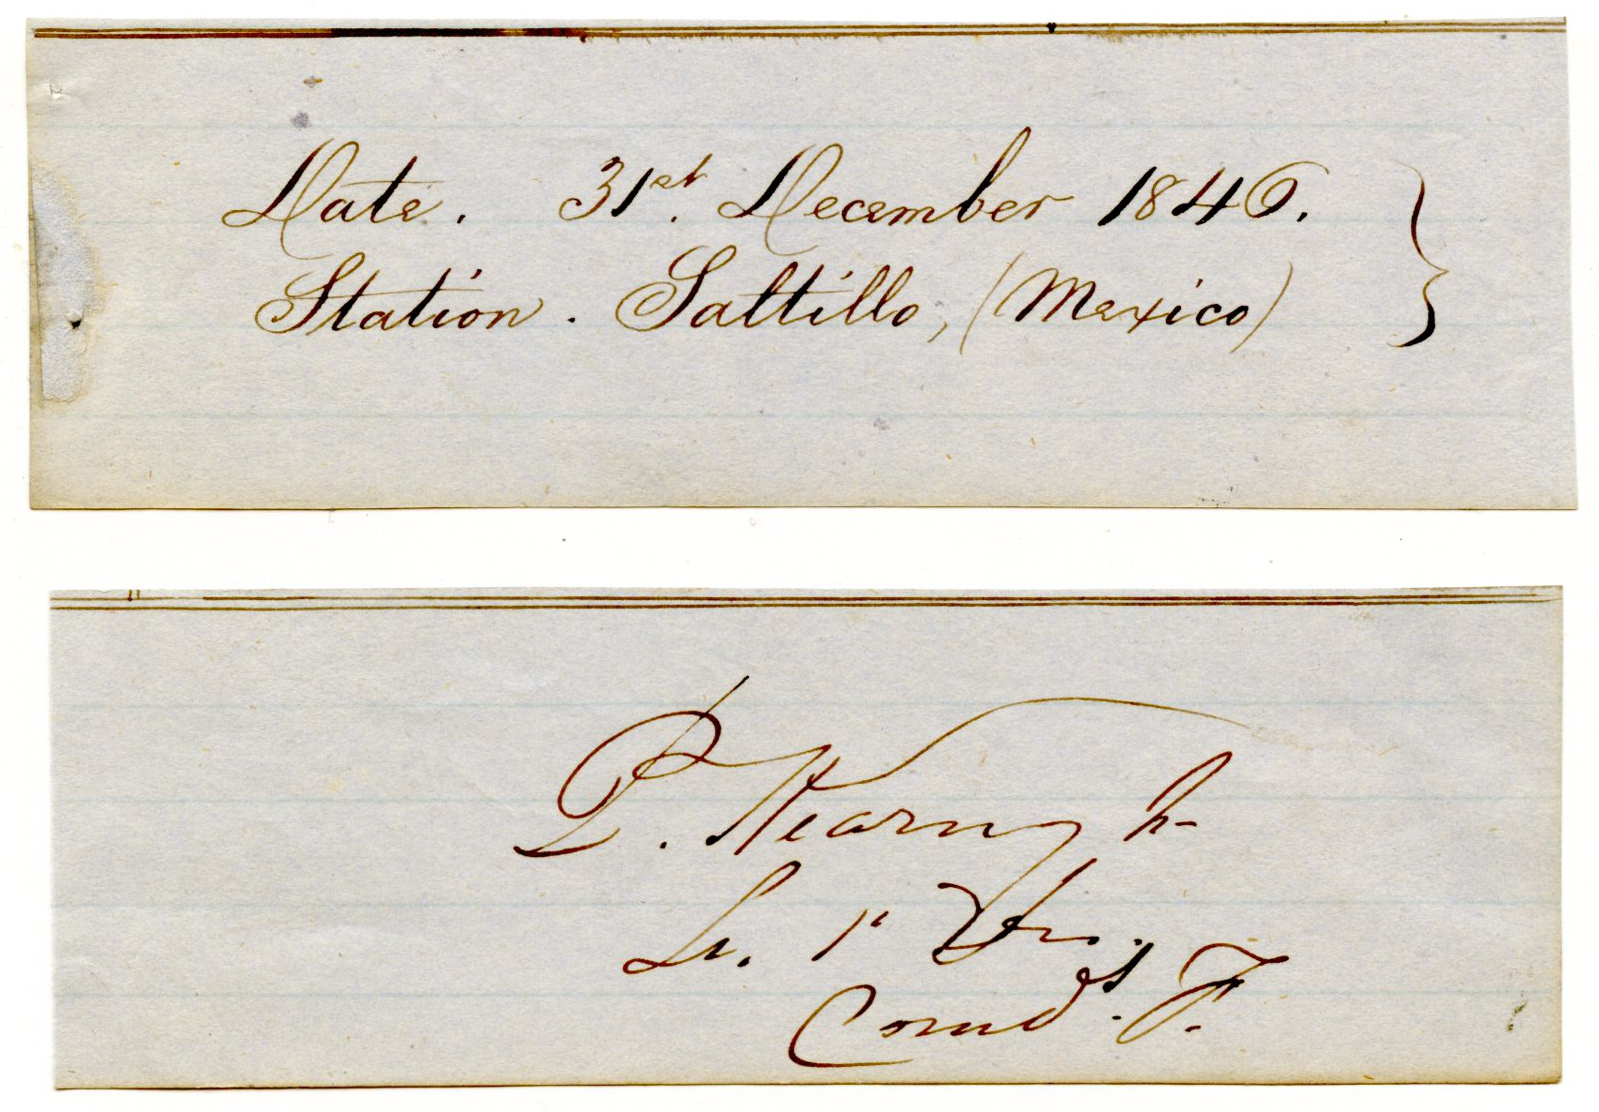 Date. 31st. December 1846.
Station. Saltillo, (Mexico) }
P. Kearny Jr
Lt. 1st Drs.
Comdg. F.